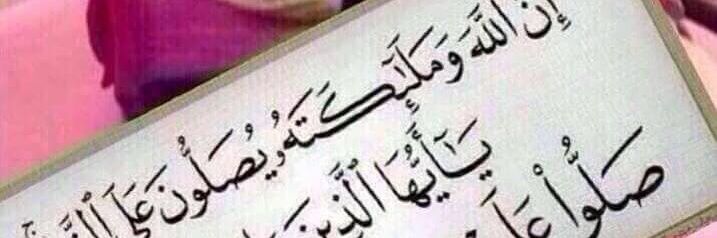 إِنَّ ٱللَّهَ وَمَلَٰٓئِكَتَهُۥ يُصَلُّونَ عَلَى
يَٰٓأَيُّهَا ٱلَّذِينَ
صَلُّوا۟